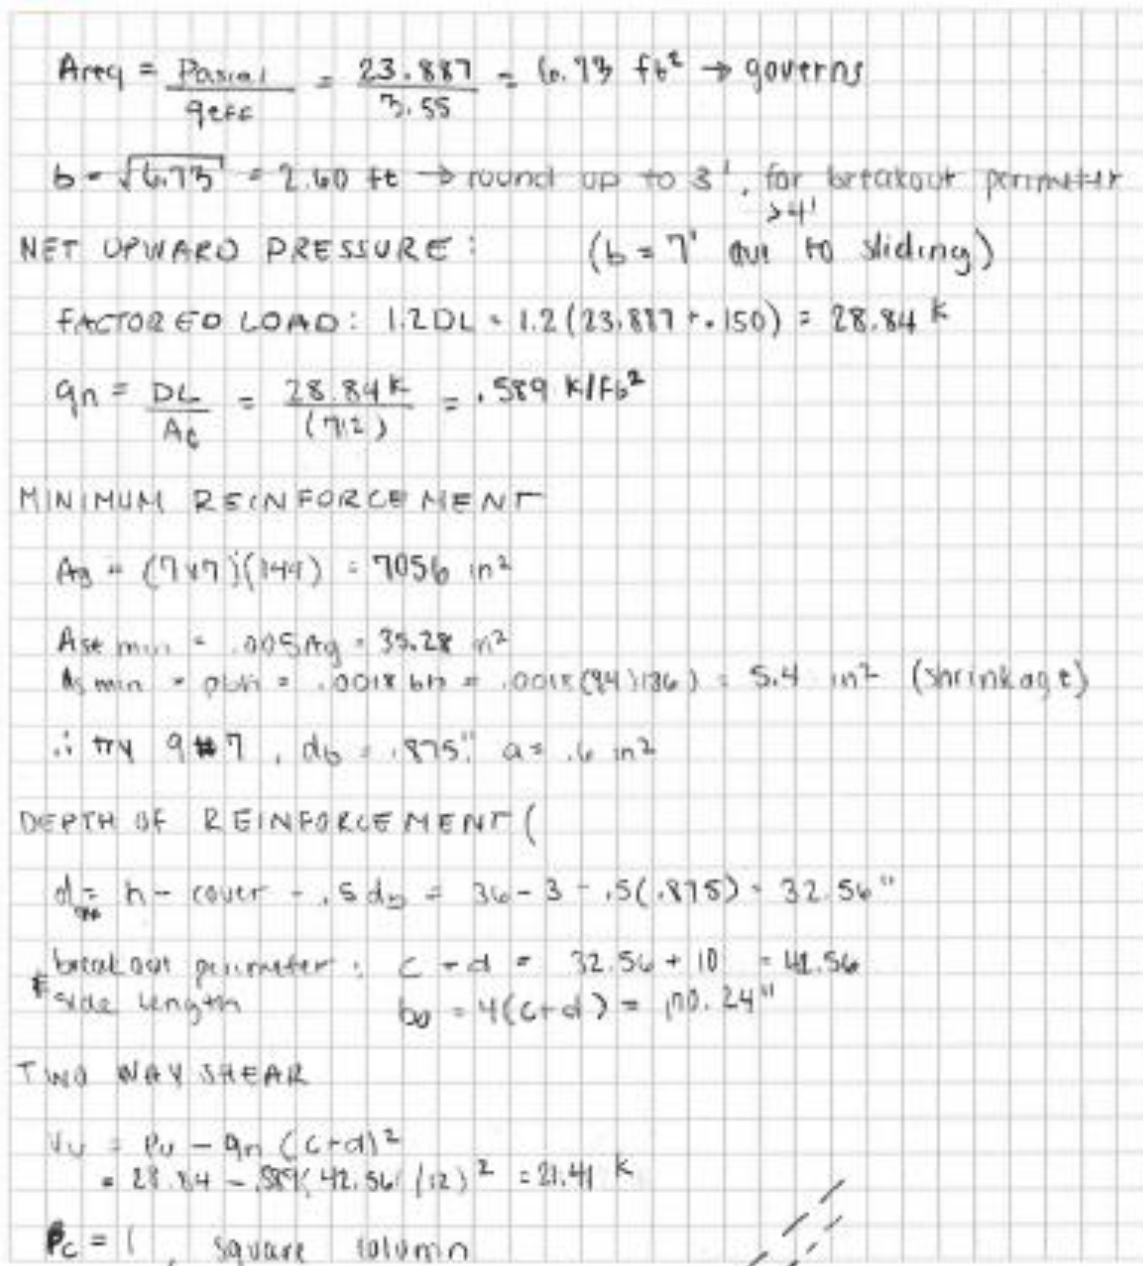 Areq = Paxial / qeff = 23.887 / 3.55 = 6.73 ft² → governs
b = √6.73 = 2.60 ft → round up to 3', for breakout perimeter >4'
NET UPWARD PRESSURE: (b = 7' due to sliding)
FACTORED LOAD: 1.2DL = 1.2(23.887 + .150) = 28.84 k
qn = DL / Af = 28.84 k / (7^2) = .589 k/ft²
MINIMUM REINFORCEMENT
Ag = (7x7)(144) = 7056 in²
Ast min = .005Ag = 35.28 in²
As min = ρbh = .0018 bh = .0018(84)(36) = 5.4 in² (shrinkage)
∴ try 9 #7, db = .875", a = .6 in²
DEPTH OF REINFORCEMENT (
d = h - cover - .5 db = 36 - 3 - .5(.875) = 32.56"
breakout perimeter: c + d = 32.56 + 10 = 42.56
side length b0 = 4(c+d) = 170.24"
TWO WAY SHEAR
Vu = Pu - qn (c+d)²
= 28.84 - .589(42.56/12)² = 21.41 k
βc = 1, square column